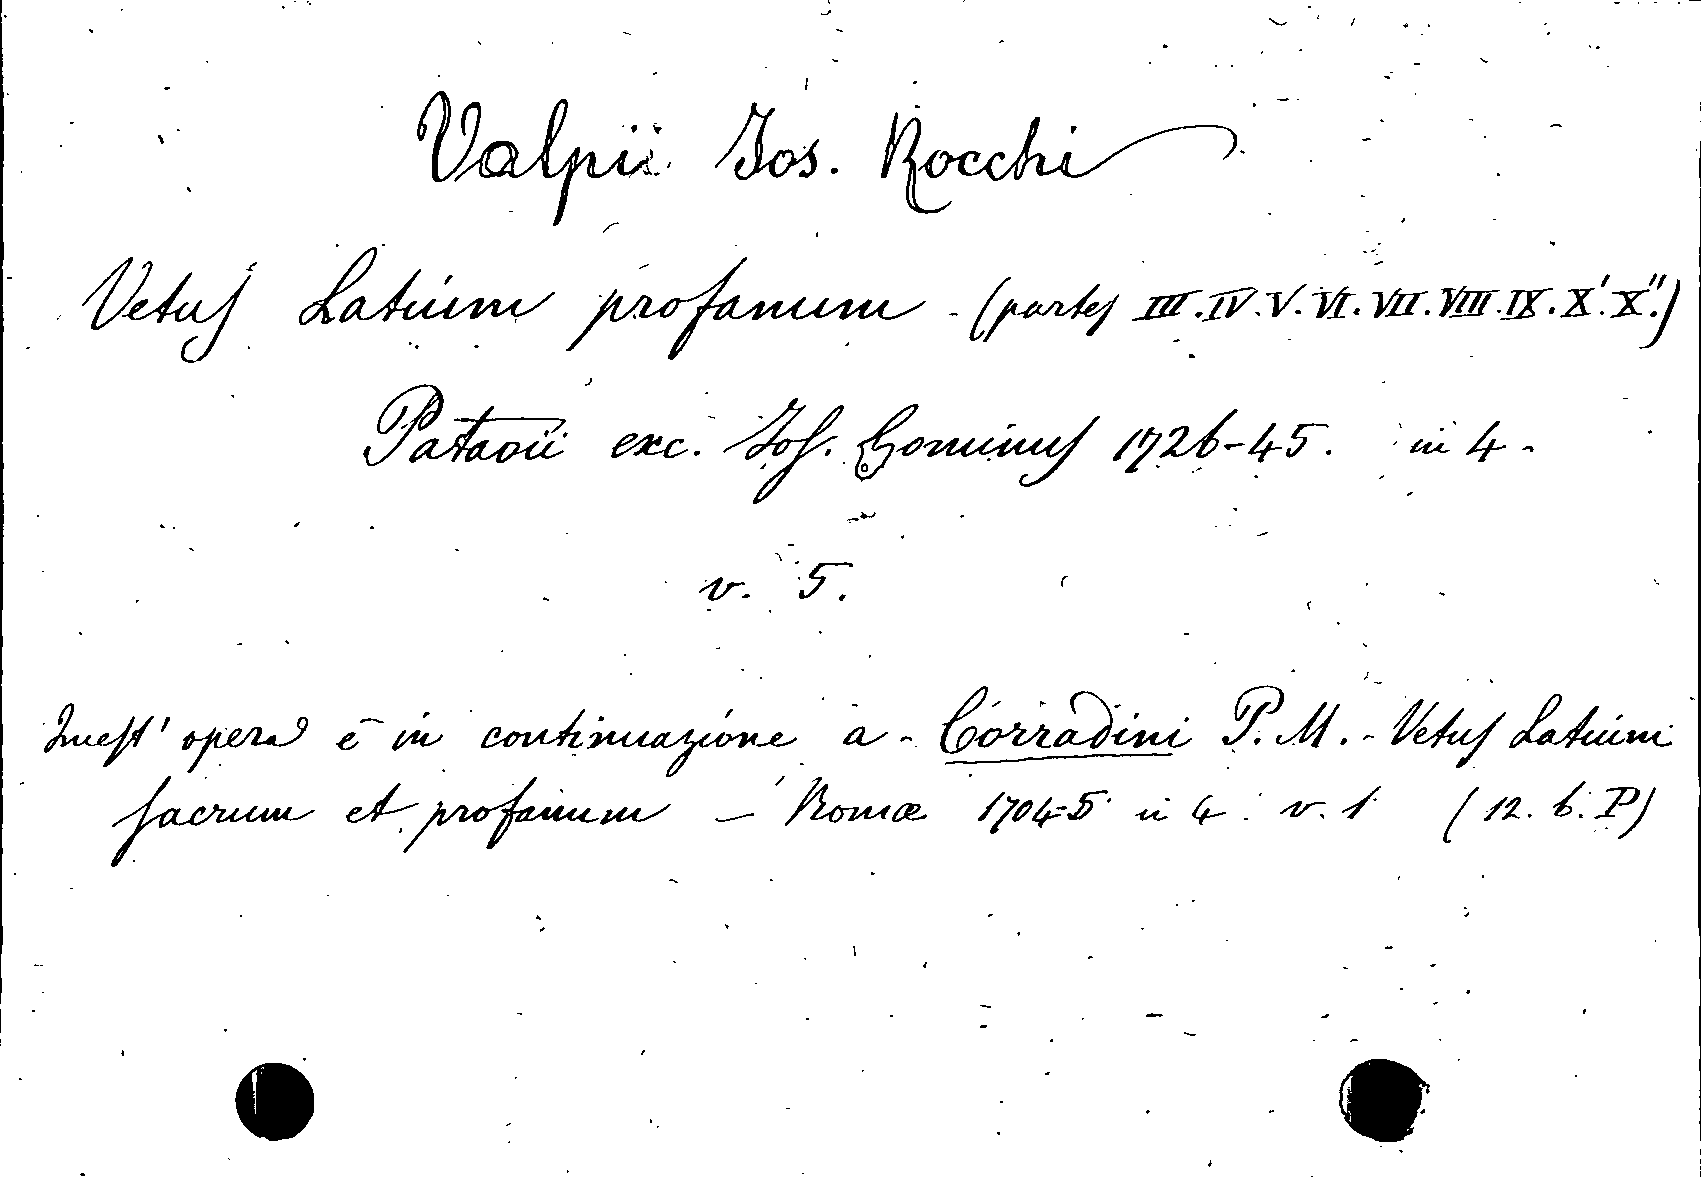 Valpii Jos. Rocchi
Vetus Latium profanum - (partes III. IV. V. VI. VII. VIII. IX. X'. X".)
Patavii exc. Jos. Cominus 1726-45. in 4.
v. 5.
Quest' opera è in continuazione a - Corradini P. M. - Vetus Latium
sacrum et profanum - Romæ 1704-5 in 4. v. 1 (12. b. P)